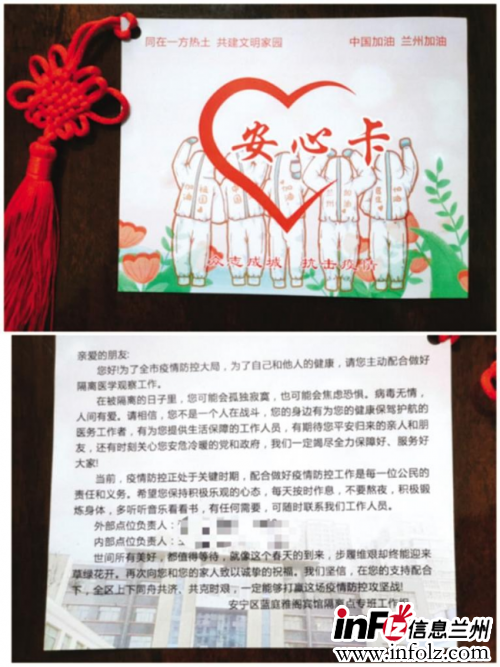 同在一方热土 共建文明家园
中国加油 兰州加油
安心卡
众志成城 抗击疫情
亲爱的朋友:
您好!为了全市疫情防控大局,为了自己和他人的健康,请您主动配合做好
隔离医学观察工作。
在被隔离的日子里,您可能会孤独寂寞,也可能会焦虑恐惧。病毒无情,
人间有爱。请相信,您不是一个人在战斗,您的身边有为您的健康保驾护航的
医务工作者,有为您提供生活保障的工作人员,有期待您平安归来的亲人和朋
友,还有时刻关心您安危冷暖的党和政府,我们一定竭尽全力保障好、服务好
大家!
当前,疫情防控正处于关键时期,配合做好疫情防控工作是每一位公民的
责任和义务。希望您保持积极乐观的心态,每天按时作息,不要熬夜,积极锻
炼身体,多听听音乐看看书,有任何需要,可随时联系我们工作人员。
外部点位负责人:
内部点位负责人:
世间所有美好,都值得等待,就像这个春天的到来,步履维艰却终能迎来
草绿花开。再次向您和您的家人致以诚挚的祝福。我们坚信,在您的支持配合
下,全区上下同舟共济、共克时艰,一定能够打赢这场疫情防控攻坚战!
安宁区蓝庭雅阁宾馆隔离点专班工作
infolz信息兰州
www.infolz.com